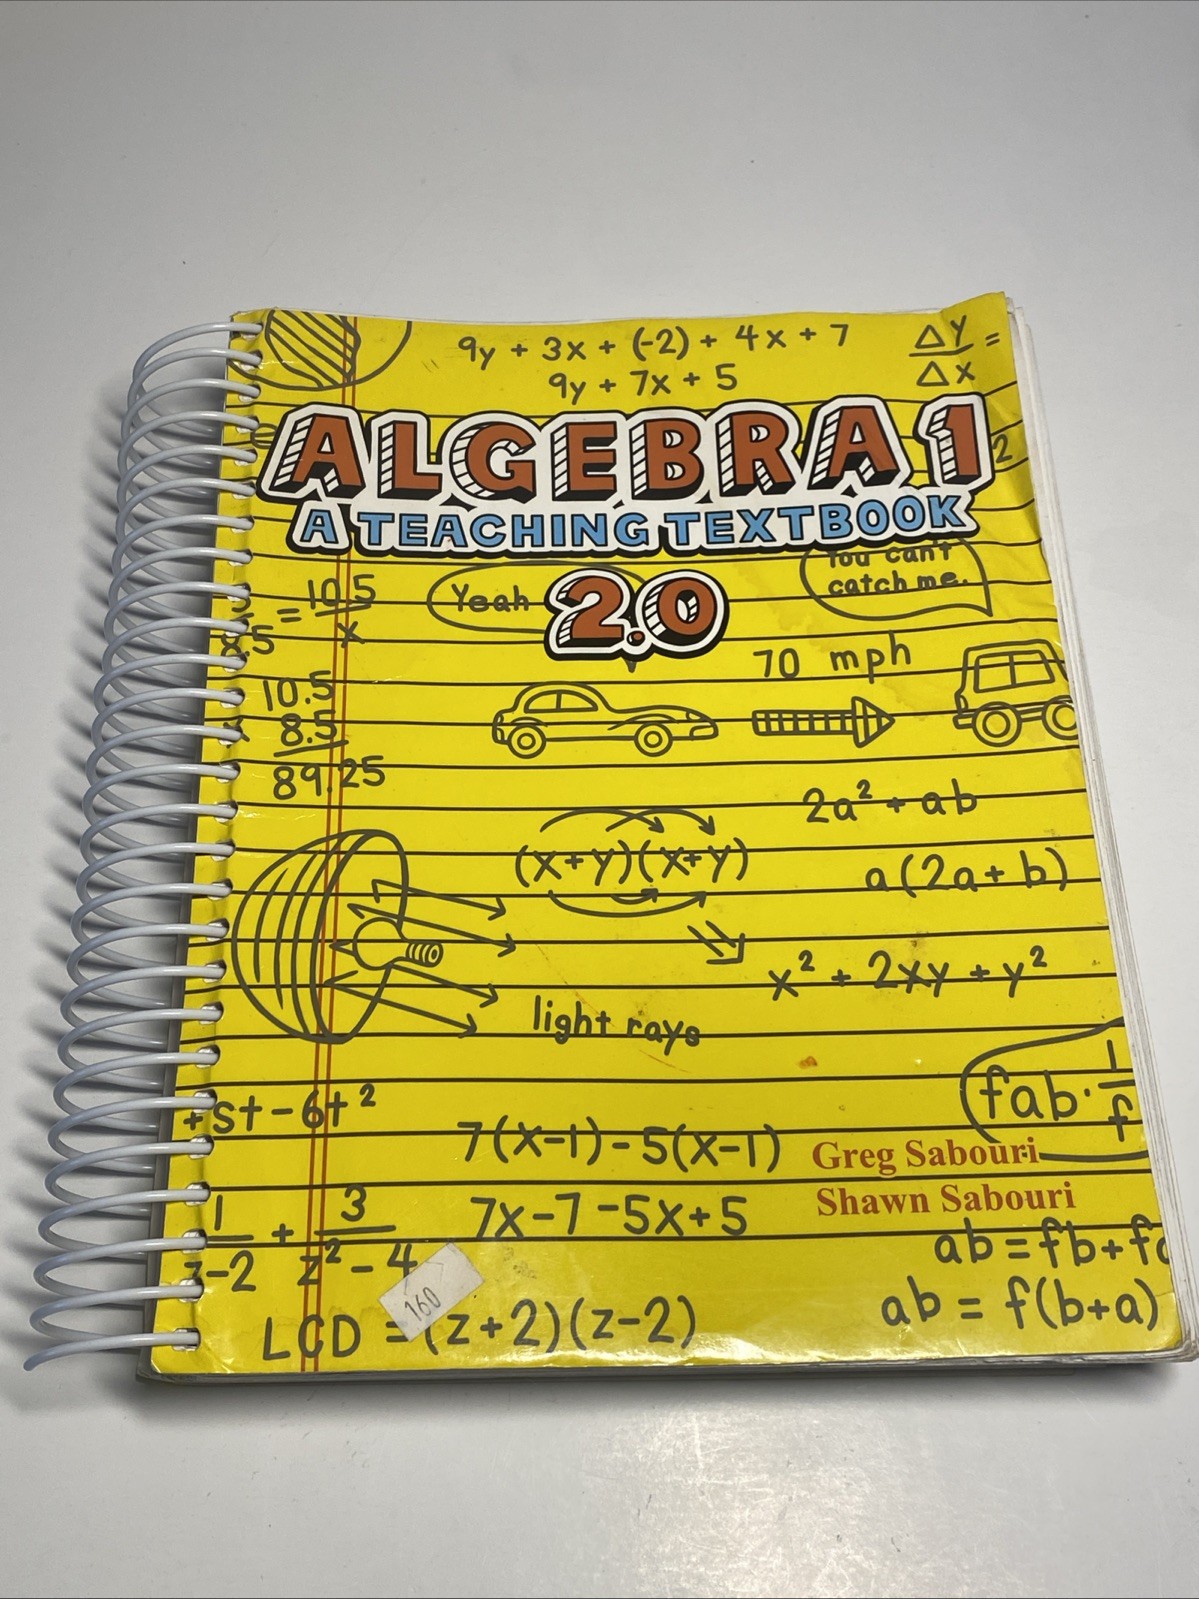 9y + 3x + (-2) + 4x + 7
9y + 7x + 5
ΔY =
ΔX
ALGEBRA 1
2
A TEACHING TEXTBOOK
2.0
You can't
catch me.
Yeah
= 10.5
8.5 x
70 mph
10.5
8.5
89.25
2a² + ab
(x+y)(x+y)
a(2a+b)
x² + 2xy + y²
light rays
fab · 1
f
+st-6t²
7(x-1)-5(x-1)
Greg Sabouri
Shawn Sabouri
7x-7-5x+5
1 + 3
z-2 z²-4
ab = fb+f
160
LCD = (z+2)(z-2)
ab = f(b+a)